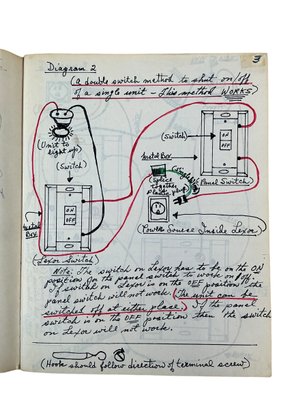 3
Diagram 2
(A double switch method to shut on/off
of a single unit - This method WORKS)
(Unit to
light up)
(Switch)
ON
OFF
Instal Box
(Lexor Switch)
(Switch)
ON
OFF
Instal Box
(Panel Switch)
(Splice
Together
Plastic plug)
(Power Source Inside Lexor)
Note: The switch on Lexor has to be on the ON
position for the panel switch to work on/off.
If switch on Lexor is on the OFF position, the
panel switch will not work. (The unit can be
switched off at either place.) If the panel
switch is on the OFF position then the switch
on Lexor will not work.
(Hook should follow direction of terminal screw)